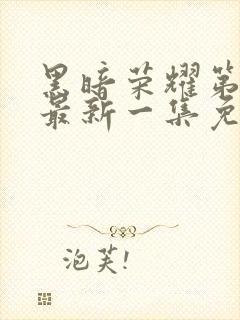 黑暗荣耀第
最新一集免
泡芙!